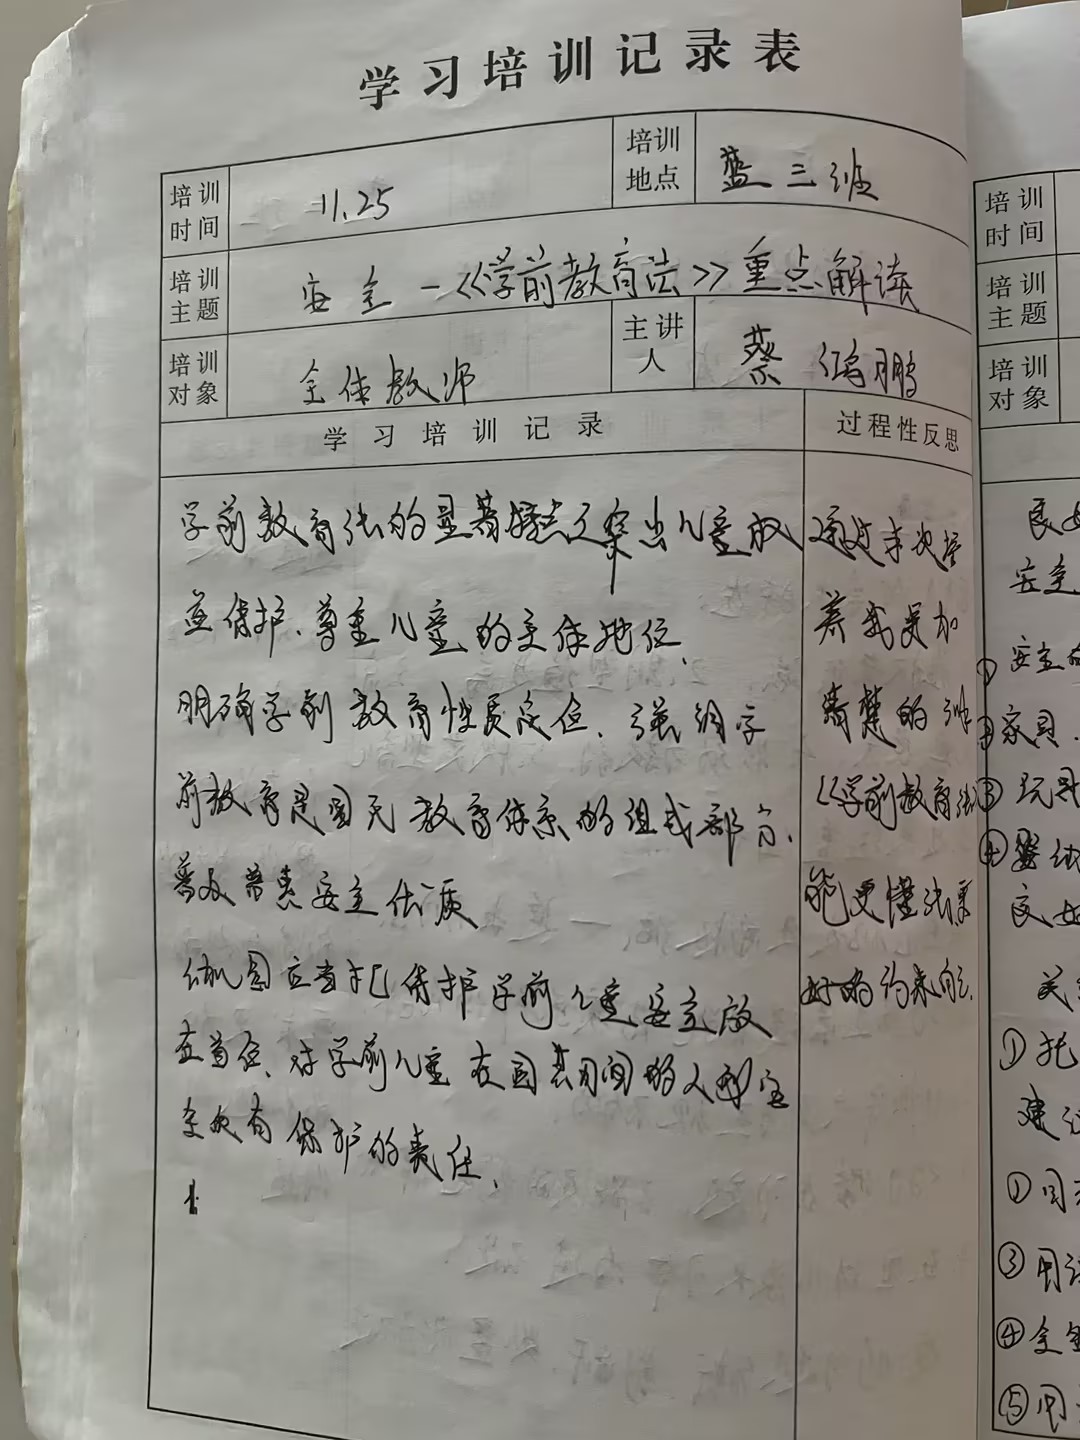 学习培训记录表
培训时间 11.25 培训地点 蓝三班
培训主题 安全-《学前教育法》重点解读
培训对象 全体教师 主讲人 蔡鸿鹏
学习培训记录 过程性反思
学前教育法的显著特点是突出儿童权
益保护、尊重儿童的主体地位、
明确学前教育性质定位、强调学
前教育是国民教育体系的组成部分、
普及普惠安全优质
幼儿园应当把保护学前儿童安全放
在首位、对学前儿童在园期间的人身安
全负有保护的责任、
通过本次培
养我更加
清楚的
《学前教育法
能更懂法
好的约束自己
培训时间
培训主题
培训对象
安全
①安全
②家具、
③玩具
④
①
建
①用
③用
④全
⑤用